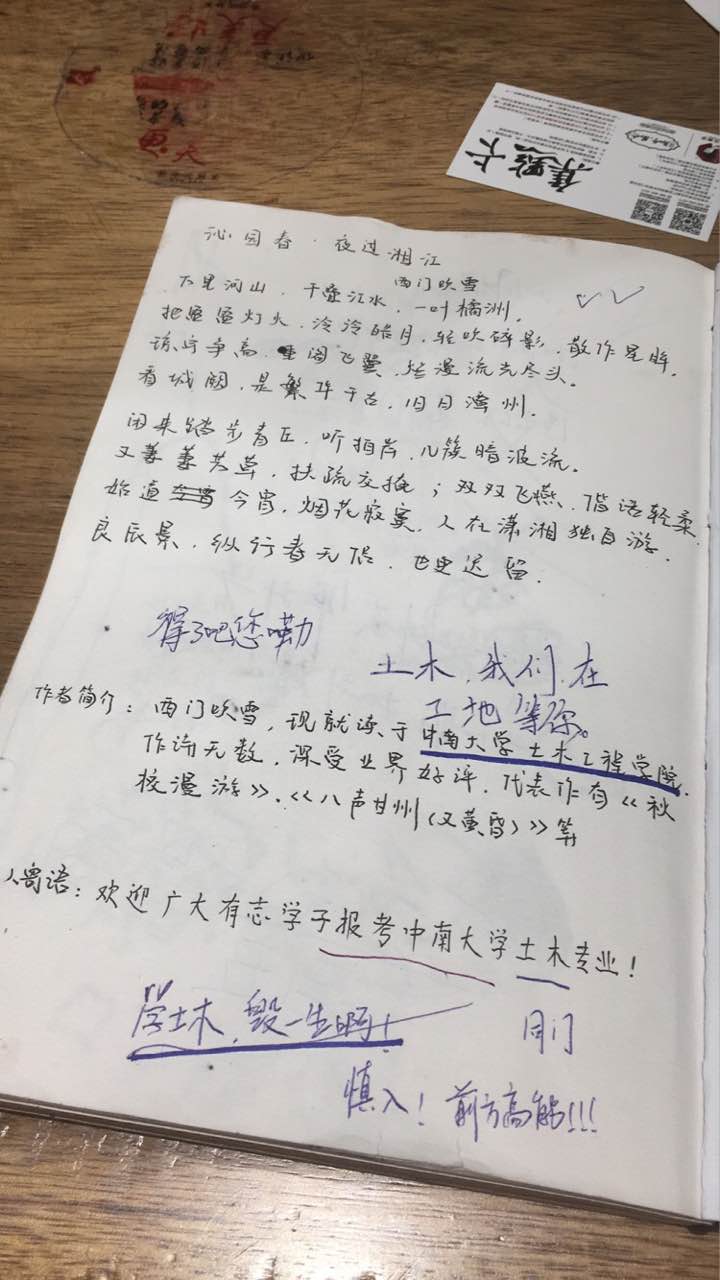 集點卡
沁园春·夜过湘江
西门吹雪
万里河山,千叠江水,一叶橘洲。
把盏盏灯火,泠泠皓月,轻吹碎影,散作星眸。
琼宇争高,重阁飞翼,烂漫流光尽头。
看城阙,是繁华千古,旧日潭州。
闲来踏步青丘,听拍岸,几簇暗波流。
又萋萋芳草,扶疏交掩;双双飞燕,偕语轻柔。
始道今宵,烟花寂寞,人在潇湘独自游。
良辰景,纵行者无侣,也更迟留。
得了吧您嘞
土木,我们在
工地等你。
作者简介:西门吹雪,现就读于中南大学土木工程学院,
作诗无数,深受业界好评,代表作有《秋
校漫游》、《八声甘州(又黄昏)》等
人寄语:欢迎广大有志学子报考中南大学土木专业!
学土木,毁一生啊!
同门
慎入!前方高能!!!